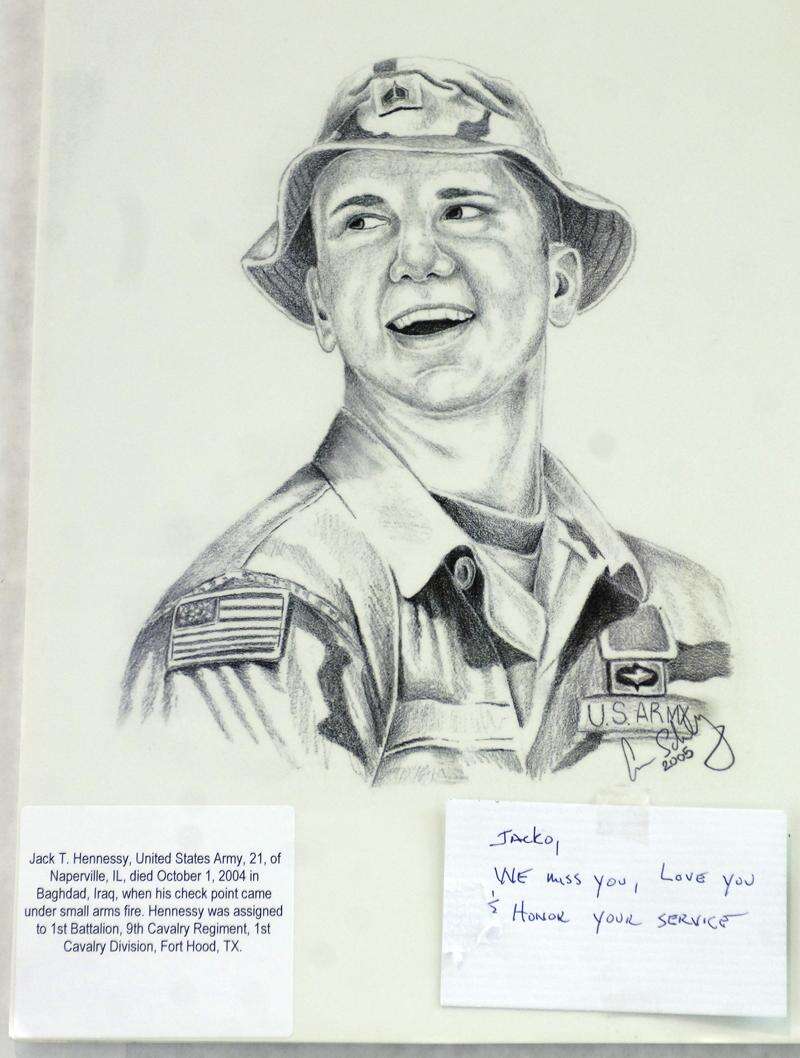 U.S. ARMY
2005
Jack T. Hennessy, United States Army, 21, of
Naperville, IL, died October 1, 2004 in
Baghdad, Iraq, when his check point came
under small arms fire. Hennessy was assigned
to 1st Battalion, 9th Cavalry Regiment, 1st
Cavalry Division, Fort Hood, TX.
JACKO,
WE MISS YOU, LOVE YOU
& HONOR YOUR SERVICE